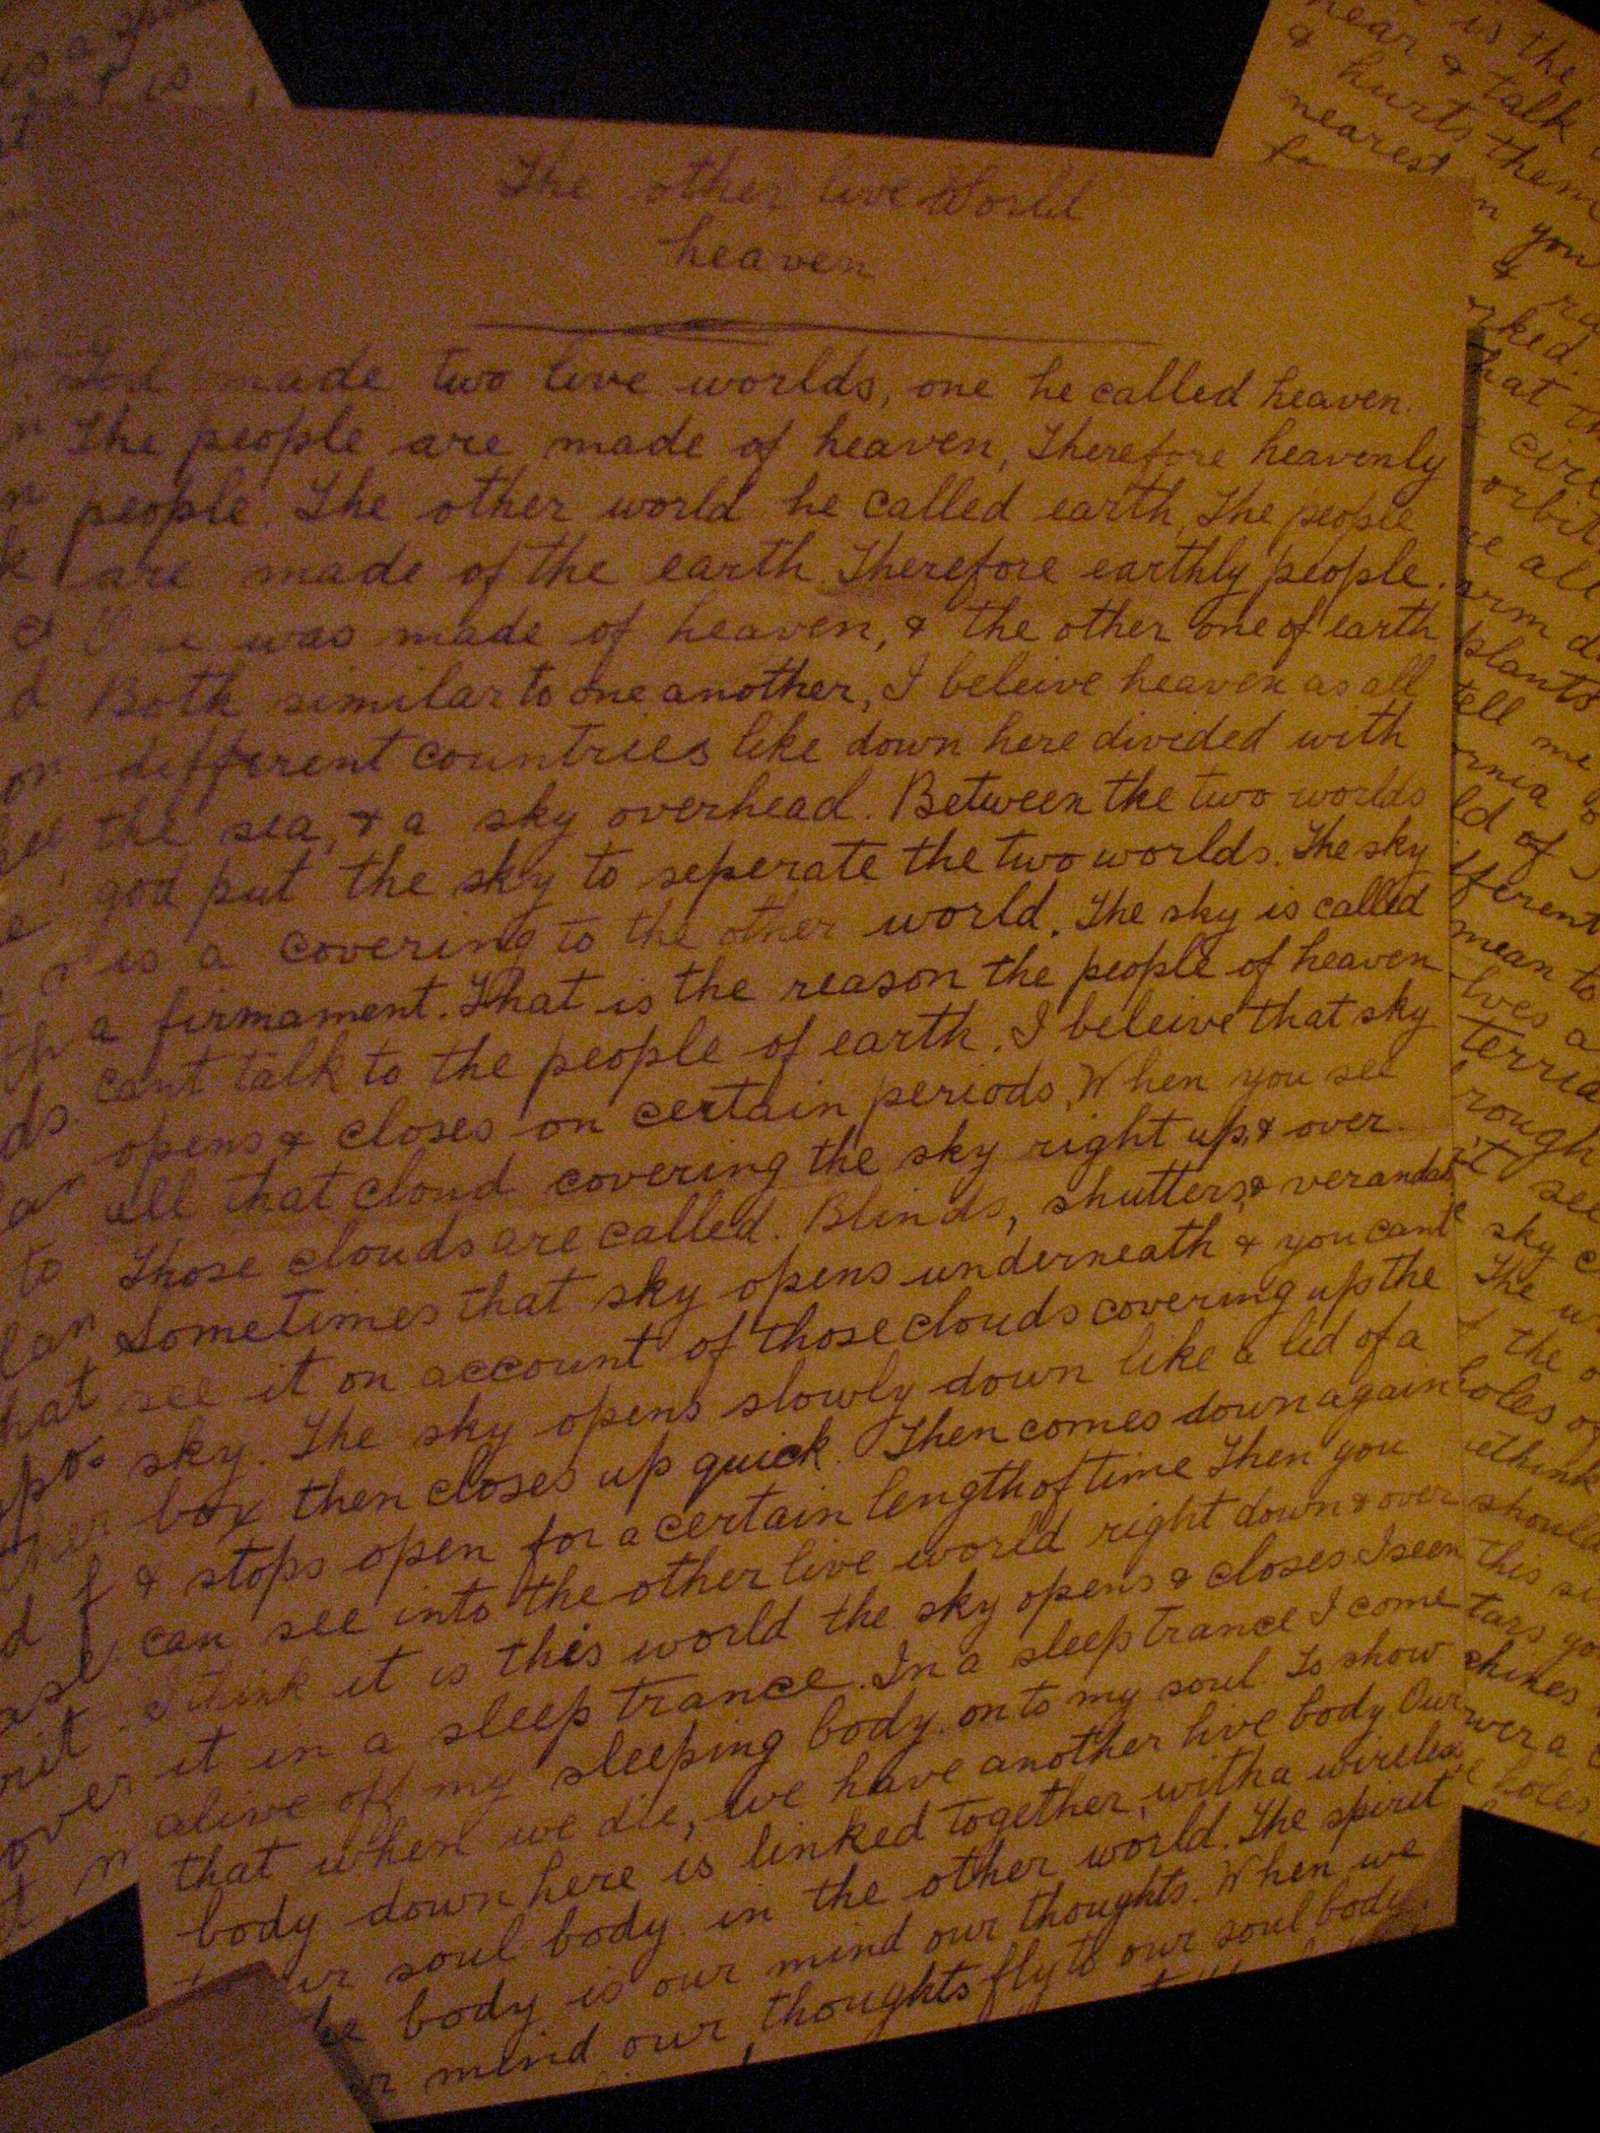 The other live World
heaven
God made two live worlds, one he called heaven.
The people are made of heaven, Therefore heavenly
people. The other world he called earth, The people
are made of the earth Therefore earthly people.
One was made of heaven, & the other one of earth
Both similar to one another, I beleive heaven as all
different countries like down here divided with
the sea, & a sky overhead. Between the two worlds
god put the sky to seperate the two worlds. The sky
is a covering to the other world. The sky is called
a firmament. That is the reason the people of heaven
cant talk to the people of earth. I beleive that sky
opens & closes on certain periods, When you see
all that cloud covering the sky right up, & over.
Those clouds are called. Blinds, shutters, & verandas
Sometimes that sky opens underneath & you cant
see it on account of those clouds covering up the
sky. The sky opens slowly down like a lid of a
box then closes up quick. Then comes down again
& stops open for a certain length of time Then you
can see into the other live world right down & over
I think it is this world the sky opens & closes I seen
it in a sleep trance. In a sleep trance I come
alive off my sleeping body. on to my soul. To show
that when we die, we have another live body Our
body down here is linked together, with a wireless
soul body. in the other world. The spirit
body is our mind our thoughts. When we
mind our thoughts fly to our soul body.
is the
near & talk
& hurts them
nearest
you
&
that
orbit
all
plants
tell me
of
mean to
a
rough
see
sky
The
the
holes
should
this
shines
over a
holes
is a
is
ds.
to
that
over